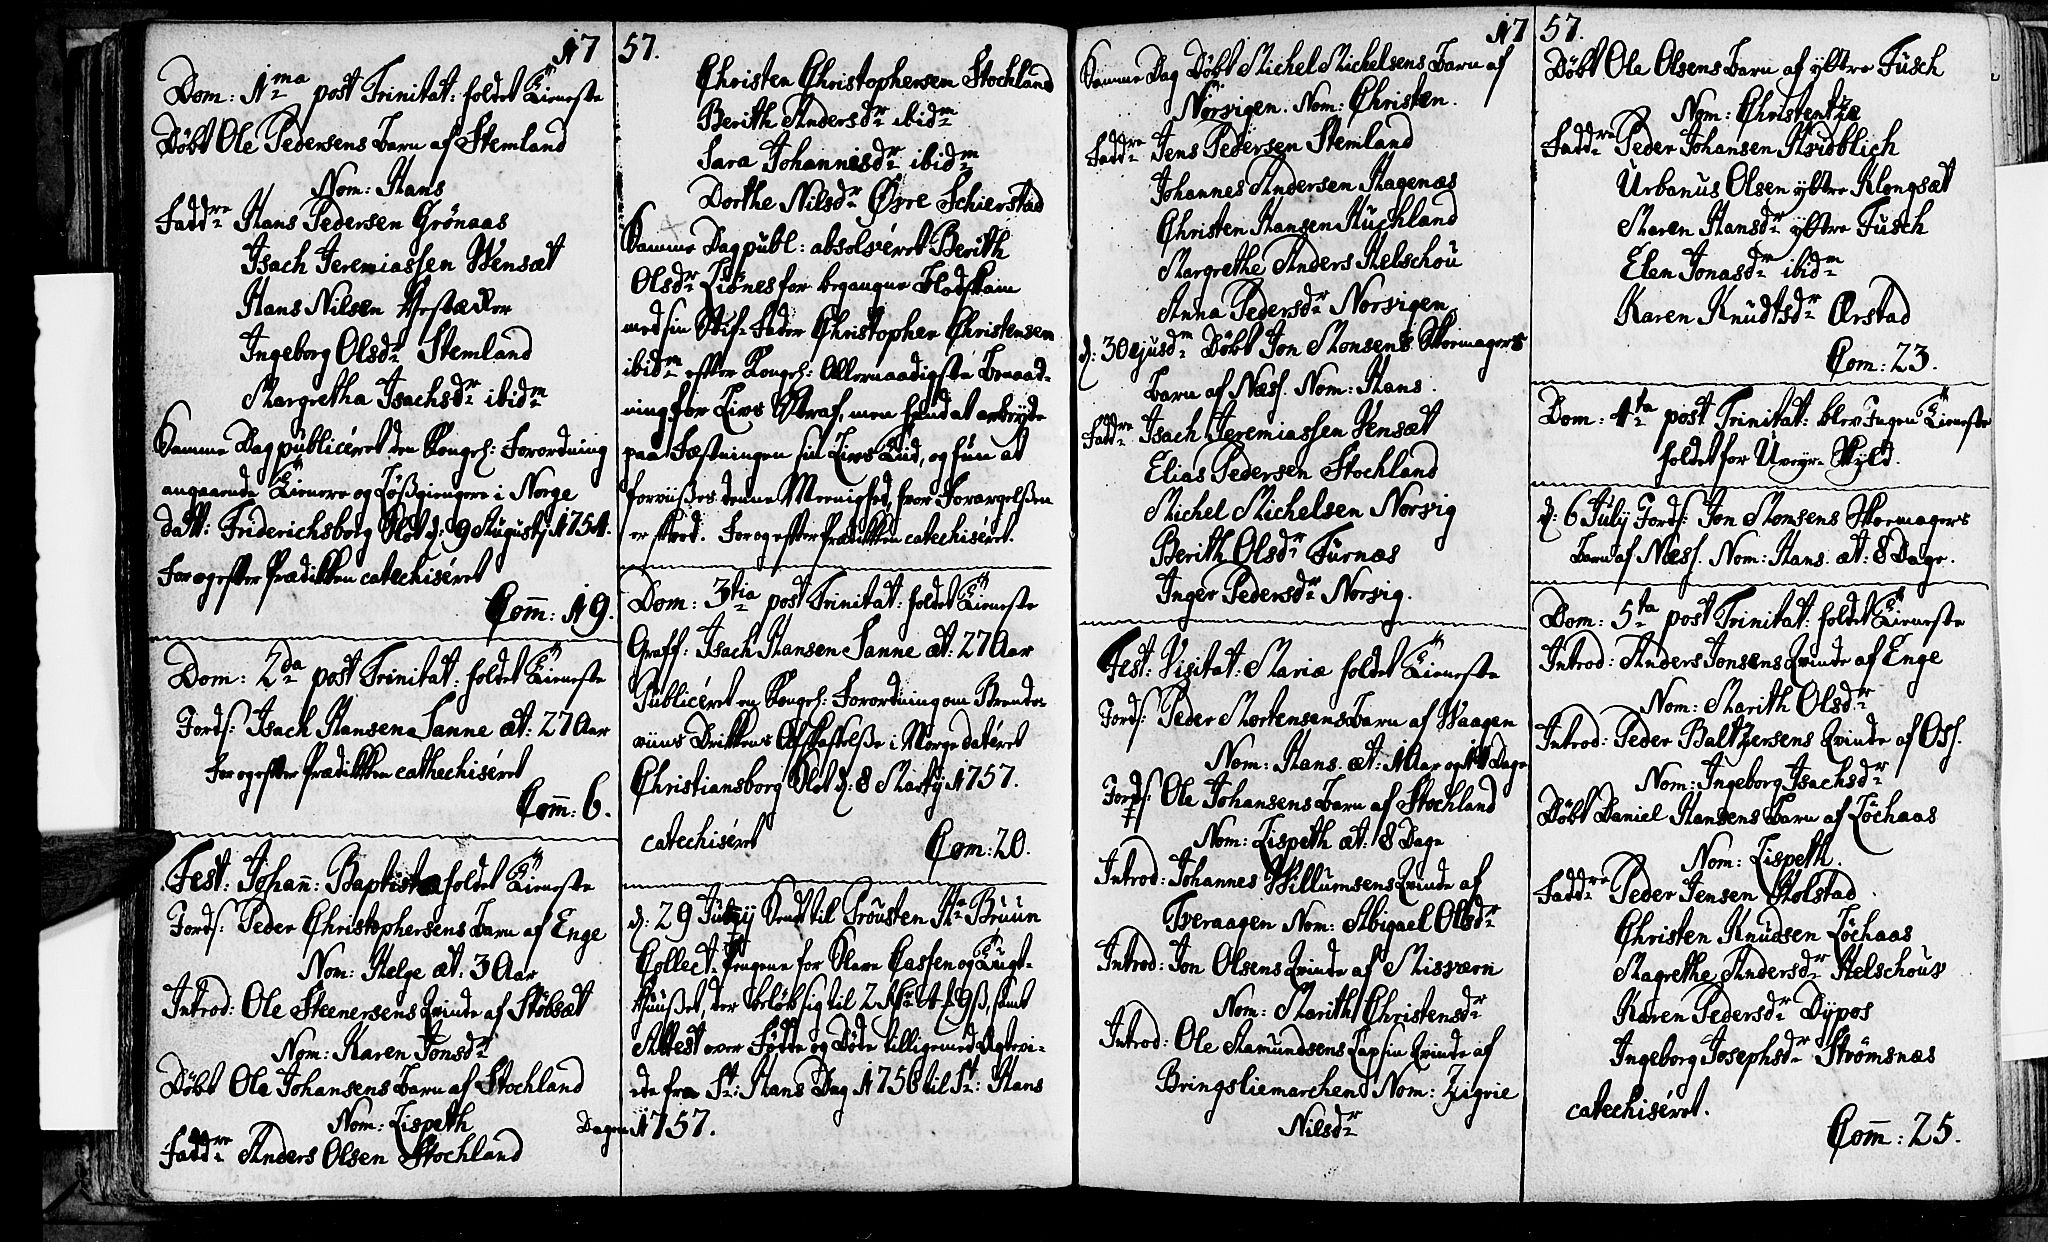 17
Dom: 1ma post Trinitat: holdet Tieneste
Døbt Ole Pedersens Barn af Stemland
Nom: Hans
Faddre Hans Pedersen Grönaas
Isach Jeremiassen Wensæt
Hans Nilsen
Ingeborg Olsdr Stemland
Margretha Isachsdr ibidm
Samme Dag publicéret den Kongel: Forordning
angaaende Tienere og Lößgiengere i Norge
dat: Friderichsborg Slot d: 9 Augustj 1754.
For og efter Prædikken catechiséret
Com̄: 19.
Dom: 2da post Trinitat: holdet Tieneste
Jords: Isach Hansen Sanne æt: 27 Aar
For og efter Prædikken cathechiséret
Com̄: 6.
Fest: Johan̄: Baptistæ holdet Tieneste
Jords: Peder Christophersens Barn af Enge
Nom: Helge æt: 3 Aar
Introd: Ole Steenersens Qvinde af Stöbsæt
Nom: Karen Jonsdr
Døbt Ole Johansens Barn af Stochland
Nom: Lispeth
Faddre Anders Olsen Stochland
57.
Christen Christophersen Stochland
Berith Andersdr ibidm
Sara Johannisdr ibidm
Dorthe Nilsdr Øvre Schierstad
Samme Dag publ: absolvéret Berith
Olsdr for begangne Blodskam
med sin Stif-Fader Christopher Christensen
ibidm efter Kongel: Allernaadigste Benaad-
ning for Livs Straf, men hand at arbeyde
paa Fæstningen sin Livs Tiid, og hun at
forviises denne Meenighed, hvor Forargelsen
er skeed. For og efter Prædikken catechiséret.
Dom: 3tia post Trinitat: holdet Tieneste
Graff: Isach Hansen Sanne æt: 27 Aar
Publicéret en Kongel: Forordning om Brende-
viins Drikkens Afskaffelse i Norge datéret
Christiansborg Slot d: 8 Martij 1757.
catechiséret Com: 20.
d: 29 Juny Sendt til Provsten Hr Bruun
Collect-Pengene for Slave Cassen og Tugt-
Huuset, der beløb sig til 2 4 9 ß, samt
Attest over Födde og Döde tilligemed Ægtevi-
ede fra St: Hans Dag 1756 til St: Hans
Dagen 1757.
17
Samme Dag Døbt Michel Michelsens Barn af
Norvigen. Nom: Christen.
Faddre Jens Pedersen Stemland
Johannes Andersen Hagenæs
Christen Hansen Huchland
Margrethe Anders Helschou
Anna Pedersdr Norvigen
d: 30 ejusdm Døbt Jon Monsens Skoemagers
Barn af Næss. Nom: Hans.
Faddre Isach Jeremiassen Vensæt
Elias Pedersen Stochland
Michel Michelsen Norvig
Berith Olsdr Furnæs
Inger Pedersdr Norvig.
Fest: Visitat: Mariæ holdet Tieneste
Jords: Peder Mortensens Barn af Waagen
Nom: Hans. æt: 1 Aar og 14 Dage
Jords: Ole Johansens Barn af Stochland
Nom: Lispeth æt: 8 Dage
Introd: Johannes Willumsens Qvinde af
Tveraagen Nom: Abigael Olsdr
Introd: Jon Olsens Qvinde af Misværn
Nom: Marith Christensdr
Introd: Ole Aamundsens Lapfin Qvinde af
Bringsliemarchen Nom: Zigrie
Nilsdr
57.
Døbt Ole Olsens Barn af yttre Fusch
Nom: Christentze
Faddre Peder Johansen Hvidblich
Urbanus Olsen yttre Klongsæt
Maren Hansdr yttre Fusch
Elen Jonasdr ibidm
Karen Knudtsdr Ørstad
Com: 23.
Dom: 4ta post Trinitat: blev Ingen Tieneste
holdet for Uveyrs Skyld.
d: 6 July Jords: Jon Monsens Skoemagers
Barn af Næss. Nom: Hans. æt: 8 Dage.
Dom: 5ta post Trinitat: holdet Tieneste
Introd: Anders Jonsens Qvinde af Enge
Nom: Marith Olsdr
Introd: Peder Baltzersens Qvinde af Oss.
Nom: Ingeborg Isachsdr
Døbt Daniel Hansens Barn af Löchaas
Nom: Lispeth.
Faddre Peder Jensen Holstad
Christen Knudsen Löchaas
Magrethe Andersdr Helschouv
Karen Pedersdr Dypos
Ingeborg Josephsdr Strömsnæs
catechiséret.
Com̄: 25.